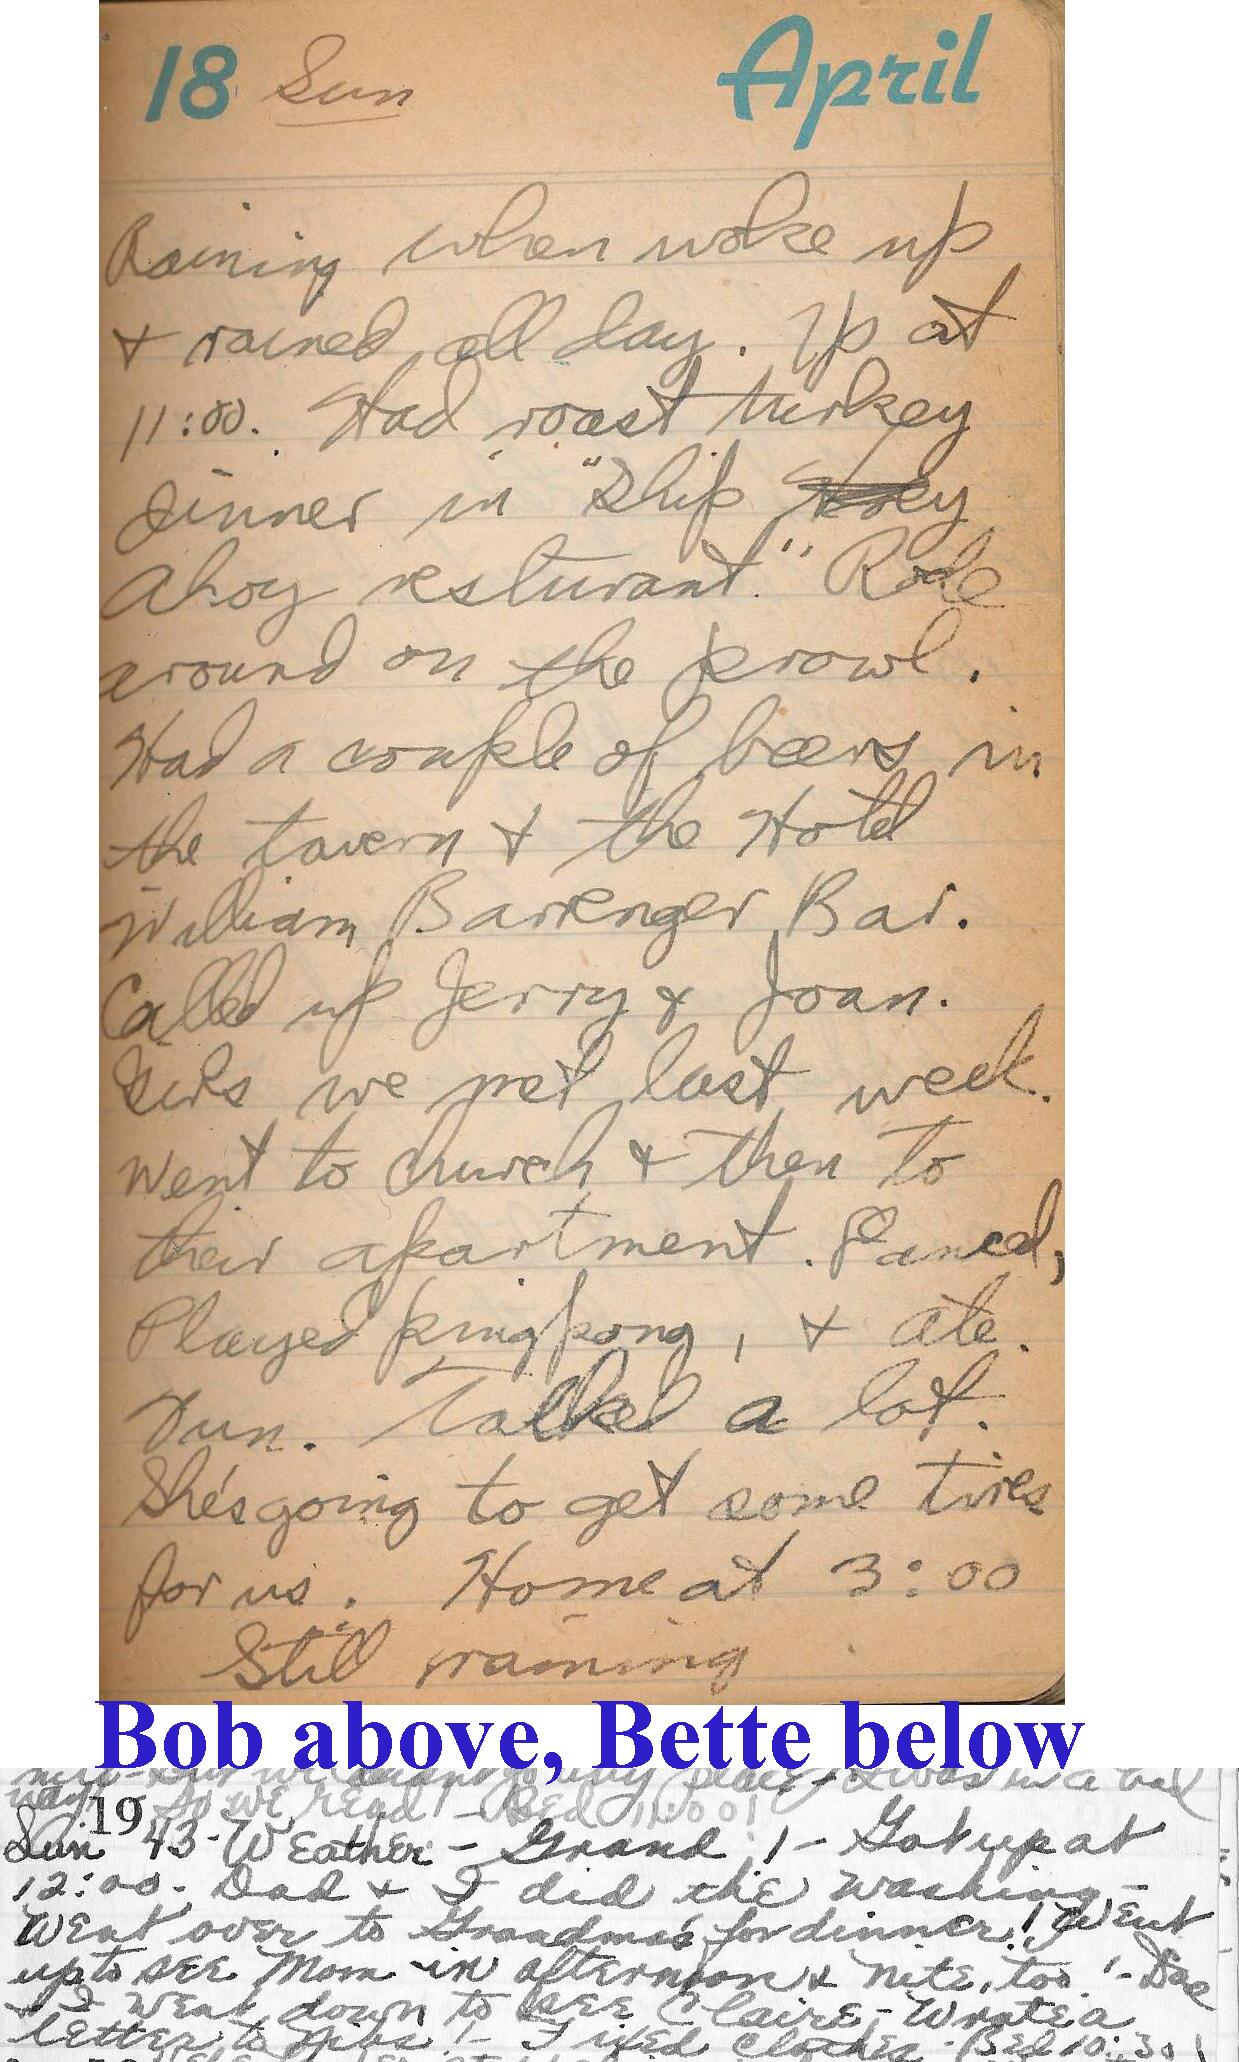 18 Sun April
Raining when woke up
& rained all day. Up at
11:00. Had roast turkey
dinner in "Ship
Ahoy resturant." Rode
around on the prowl.
Had a couple of beers in
the tavern & the Hotel
William Barrenger Bar.
Called up Jerry & Joan.
Girls we met last week.
Went to church & then to
their apartment. Danced,
Played pingpong, & ate.
Fun. Talked a lot.
She's going to get some tires
for us. Home at 3:00
Still raining
Bob above, Bette below
place - & was in a bad
way - So we read! - Bed 11:00!
19
Sun 43 - Weather - Grand! - Got up at
12:00. Dad & I did the washing -
Went over to Grandma's for dinner! Went
up to see Mom in afternoon & nite, too! - Dad
& I went down to see Claire - Wrote a
letter to ! - I ironed clothes - Bed 10:30!